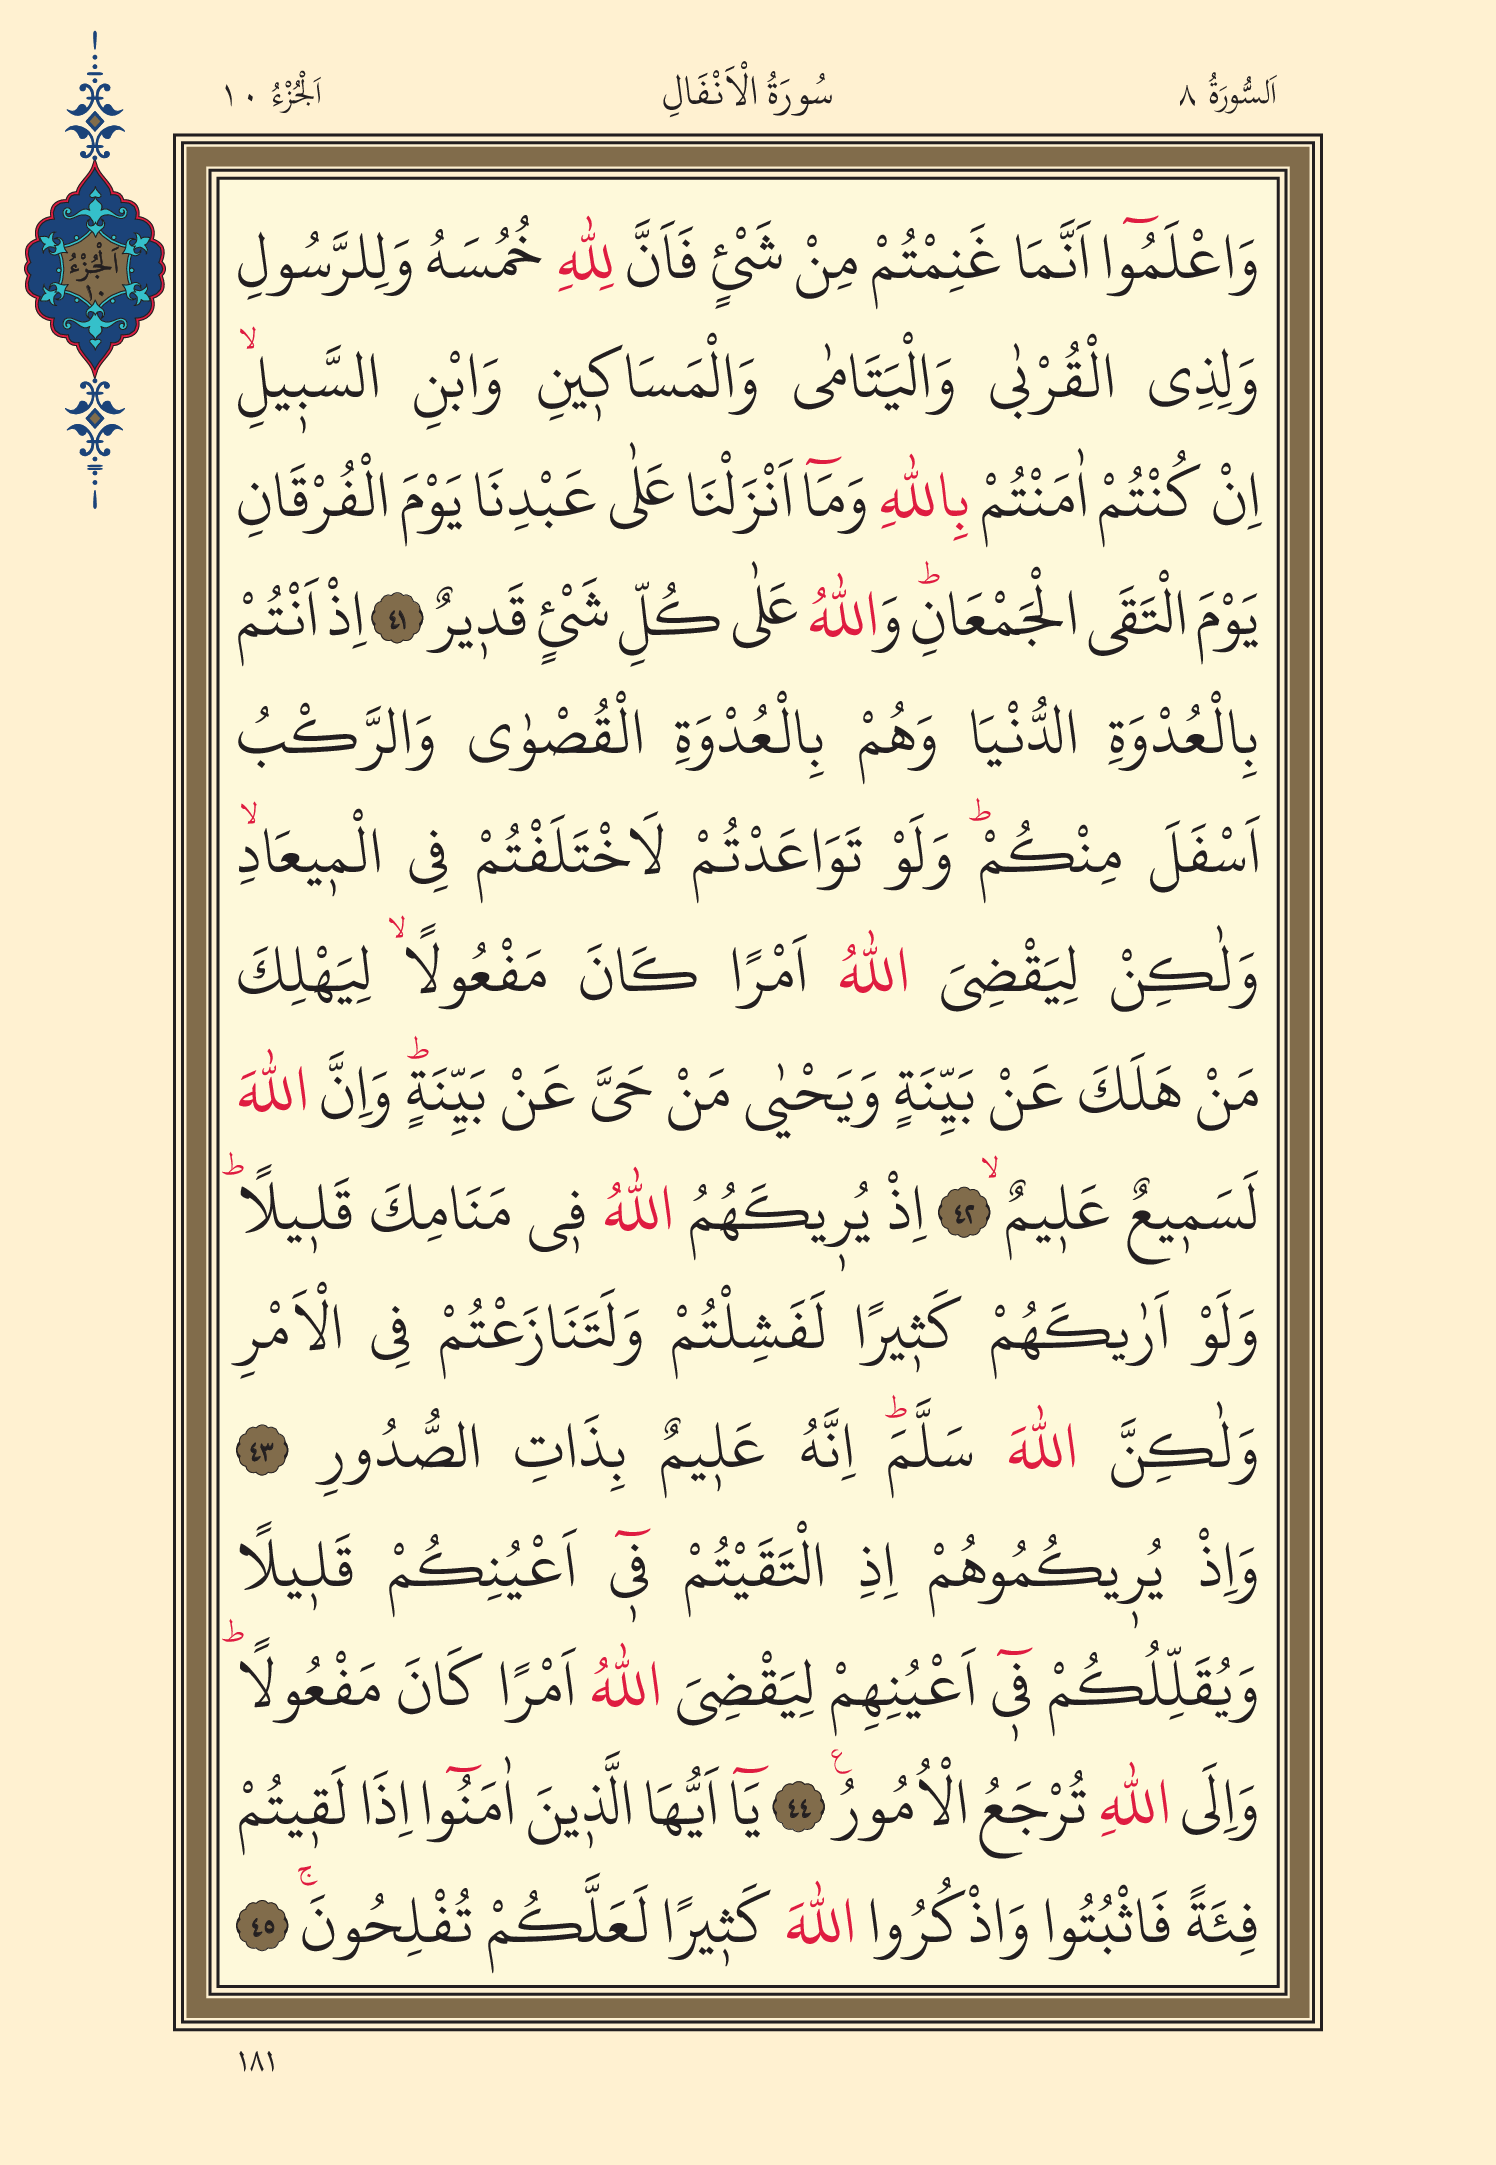 اَلسُّورَةُ ٨
سُورَةُ الْاَنْفَالِ
اَلْجُزْءُ ١٠
اَلْجُزْءُ
١٠
وَاعْلَمُٓوا اَنَّمَا غَنِمْتُمْ مِنْ شَيْءٍ فَاَنَّ لِلّٰهِ خُمُسَهُ وَلِلرَّسُولِ
وَلِذِى الْقُرْبٰى وَالْيَتَامٰى وَالْمَسَاكٖينِ وَابْنِ السَّبٖيلِۙ
اِنْ كُنْتُمْ اٰمَنْتُمْ بِاللّٰهِ وَمَٓا اَنْزَلْنَا عَلٰى عَبْدِنَا يَوْمَ الْفُرْقَانِ
يَوْمَ الْتَقَى الْجَمْعَانِؕ وَاللّٰهُ عَلٰى كُلِّ شَيْءٍ قَدٖيرٌ ٤١ اِذْ اَنْتُمْ
بِالْعُدْوَةِ الدُّنْيَا وَهُمْ بِالْعُدْوَةِ الْقُصْوٰى وَالرَّكْبُ
اَسْفَلَ مِنْكُمْؕ وَلَوْ تَوَاعَدْتُمْ لَاخْتَلَفْتُمْ فِى الْمٖيعَادِۙ
وَلٰكِنْ لِيَقْضِىَ اللّٰهُ اَمْرًا كَانَ مَفْعُولًاۙ لِيَهْلِكَ
مَنْ هَلَكَ عَنْ بَيِّنَةٍ وَيَحْيٰى مَنْ حَىَّ عَنْ بَيِّنَةٍؕ وَاِنَّ اللّٰهَ
لَسَمٖيعٌ عَلٖيمٌۙ ٤٢ اِذْ يُرٖيكَهُمُ اللّٰهُ فٖى مَنَامِكَ قَلٖيلًاؕ
وَلَوْ اَرٰيكَهُمْ كَثٖيرًا لَفَشِلْتُمْ وَلَتَنَازَعْتُمْ فِى الْاَمْرِ
وَلٰكِنَّ اللّٰهَ سَلَّمَؕ اِنَّهُ عَلٖيمٌ بِذَاتِ الصُّدُورِ ٤٣
وَاِذْ يُرٖيكُمُوهُمْ اِذِ الْتَقَيْتُمْ فٖٓى اَعْيُنِكُمْ قَلٖيلًا
وَيُقَلِّلُكُمْ فٖٓى اَعْيُنِهِمْ لِيَقْضِىَ اللّٰهُ اَمْرًا كَانَ مَفْعُولًاؕ
وَاِلَى اللّٰهِ تُرْجَعُ الْاُمُورُࣖ ٤٤ يَٓا اَيُّهَا الَّذٖينَ اٰمَنُٓوا اِذَا لَقٖيتُمْ
فِئَةً فَاثْبُتُوا وَاذْكُرُوا اللّٰهَ كَثٖيرًا لَعَلَّكُمْ تُفْلِحُونَۚ ٤٥
١٨١